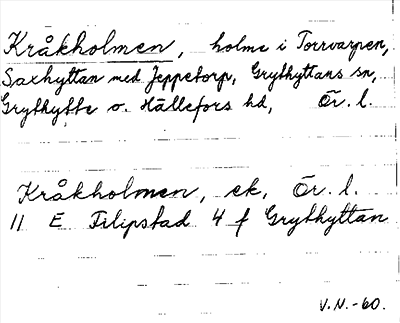 Kråkholmen, holme i Torrvarpen,
Saxhyttan med Jeppetorp, Grythyttans sn,
Grythytte o. Hällefors hd, Ör. l.
Kråkholmen, ek, Ör. l.
11 E Filipstad 4 f Grythyttan
V.N.-60.